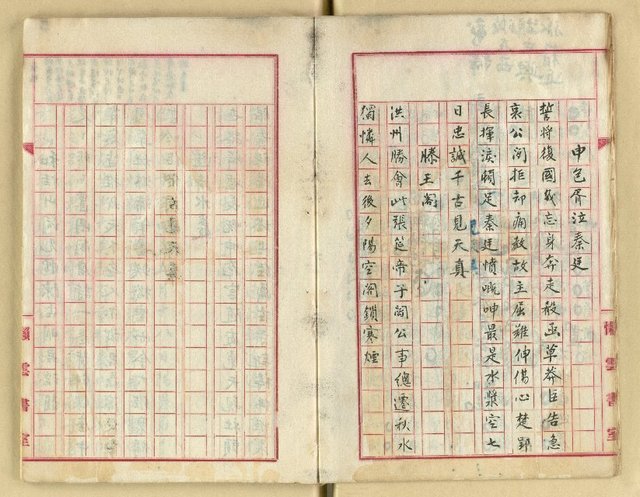 申包胥泣秦廷
誓將復國幾忘身奔走殺函草莽臣告急
哀公閉拒却痛敷故主屈難伸傷心楚郢
長揮淚觸足秦廷憤嘅呻最是水漿空七
日忠誠千古見天真
滕王閣
洪州勝會此張筵帝子閣公事總遷秋水
獨憐人去後夕陽空閣鎖寒煙
懶雲書室
懶雲書室